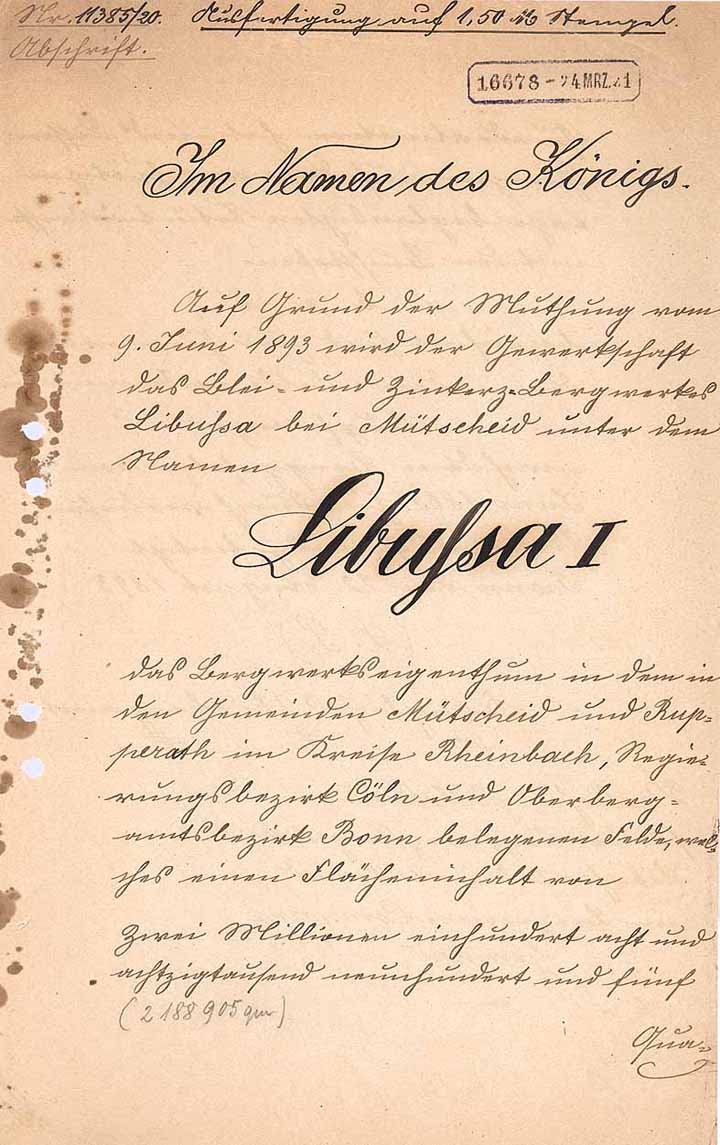 Nr. 11385/20. Ausfertigung auf 1,50 M Stempel.
Abschrift.
16678 - 24 MRZ. 21
Im Namen des Königs.
Auf Grund der Muthung vom
9. Juni 1893 wird der Gewerkschaft
das Blei- und Zinkerz-Bergwerkes
Libussa bei Mütscheid unter dem
Namen
Libussa I
das Bergwerkseigenthum in dem in
den Gemeinden Mütscheid und Rup-
perath im Kreise Rheinbach, Regie-
rungsbezirk Cöln und Oberberg-
amtsbezirk Bonn belegenen Felde, wel-
ches einen Flächeninhalt von
Zwei Millionen einhundert acht und
achtzigtausend neunhundert und fünf
(2 188 905 qm)
Qua-